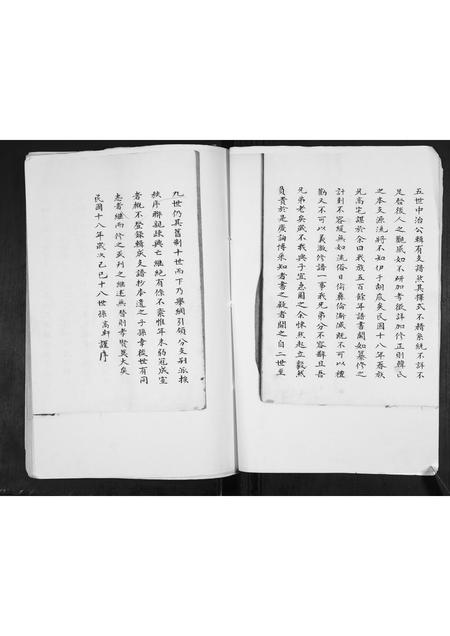 五世中治公輯有支譜狀其擇式不精系統不詳不
足啓後人之觀感如不研加考徵詳加修正則韓氏
之本支源流將不知伊于胡底矣民國十八年春族
兄高宅謀於余曰我族五百餘年譜書闕如纂修之
計刻不容緩無如流俗日偷彝倫漸滅既不可以禮
勸又不可以義激修譜一事我兄弟分不容辭且吾
兄弟老矣歲不我與子宜急圖之余悚然起立毅然
負責於是廣諏博采知者書之疑者闕之自二世至
九世仍其舊制十世而下乃舉綱引領分支別派挨
秩序聯親疎興亡繼絕有條不紊惟年未弱冠成室
者概不登錄輯成支譜抄本遺之子孫幸後世有同
志者繼而修之並列之繼述無替則孝賢莫大矣
民國十八年歲次己巳十八世孫高軒謹序